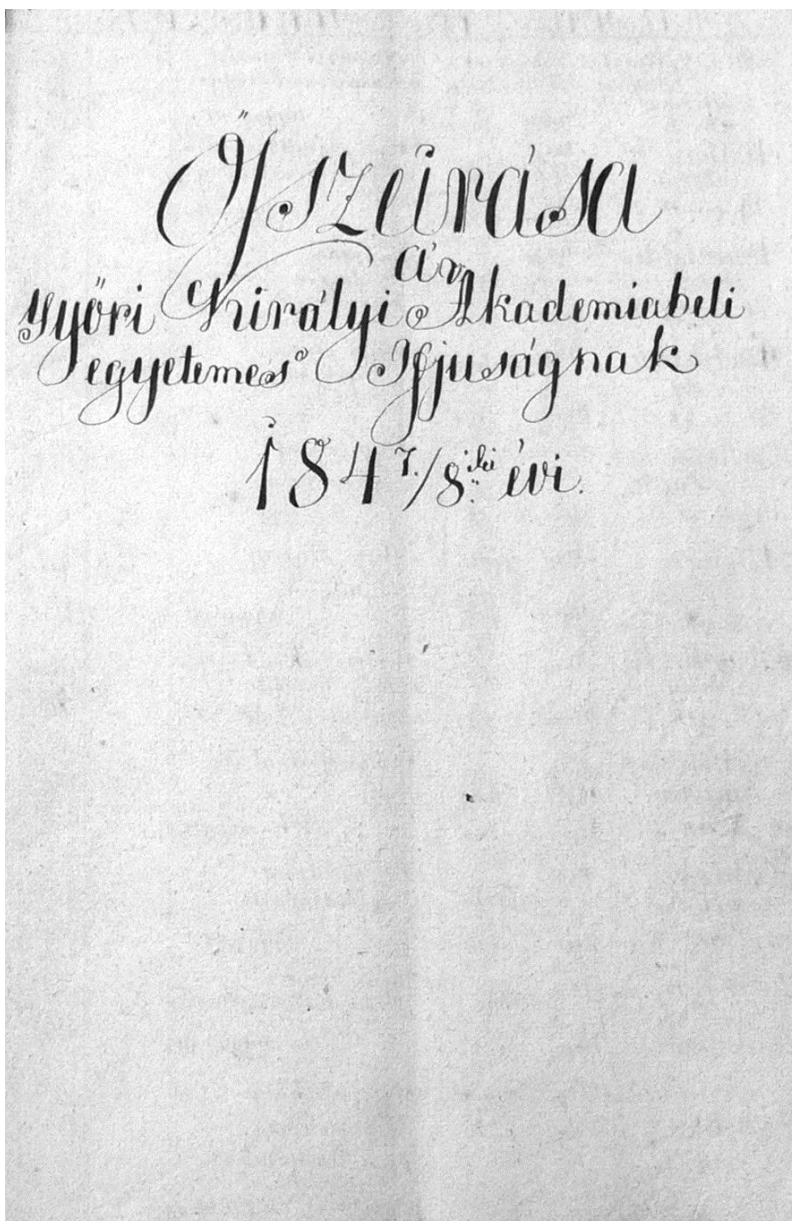 Őszszeirása
az
Győri Királyi Akademiabeli
egyetemes Ifjuságnak
184 7./8.iki évi.